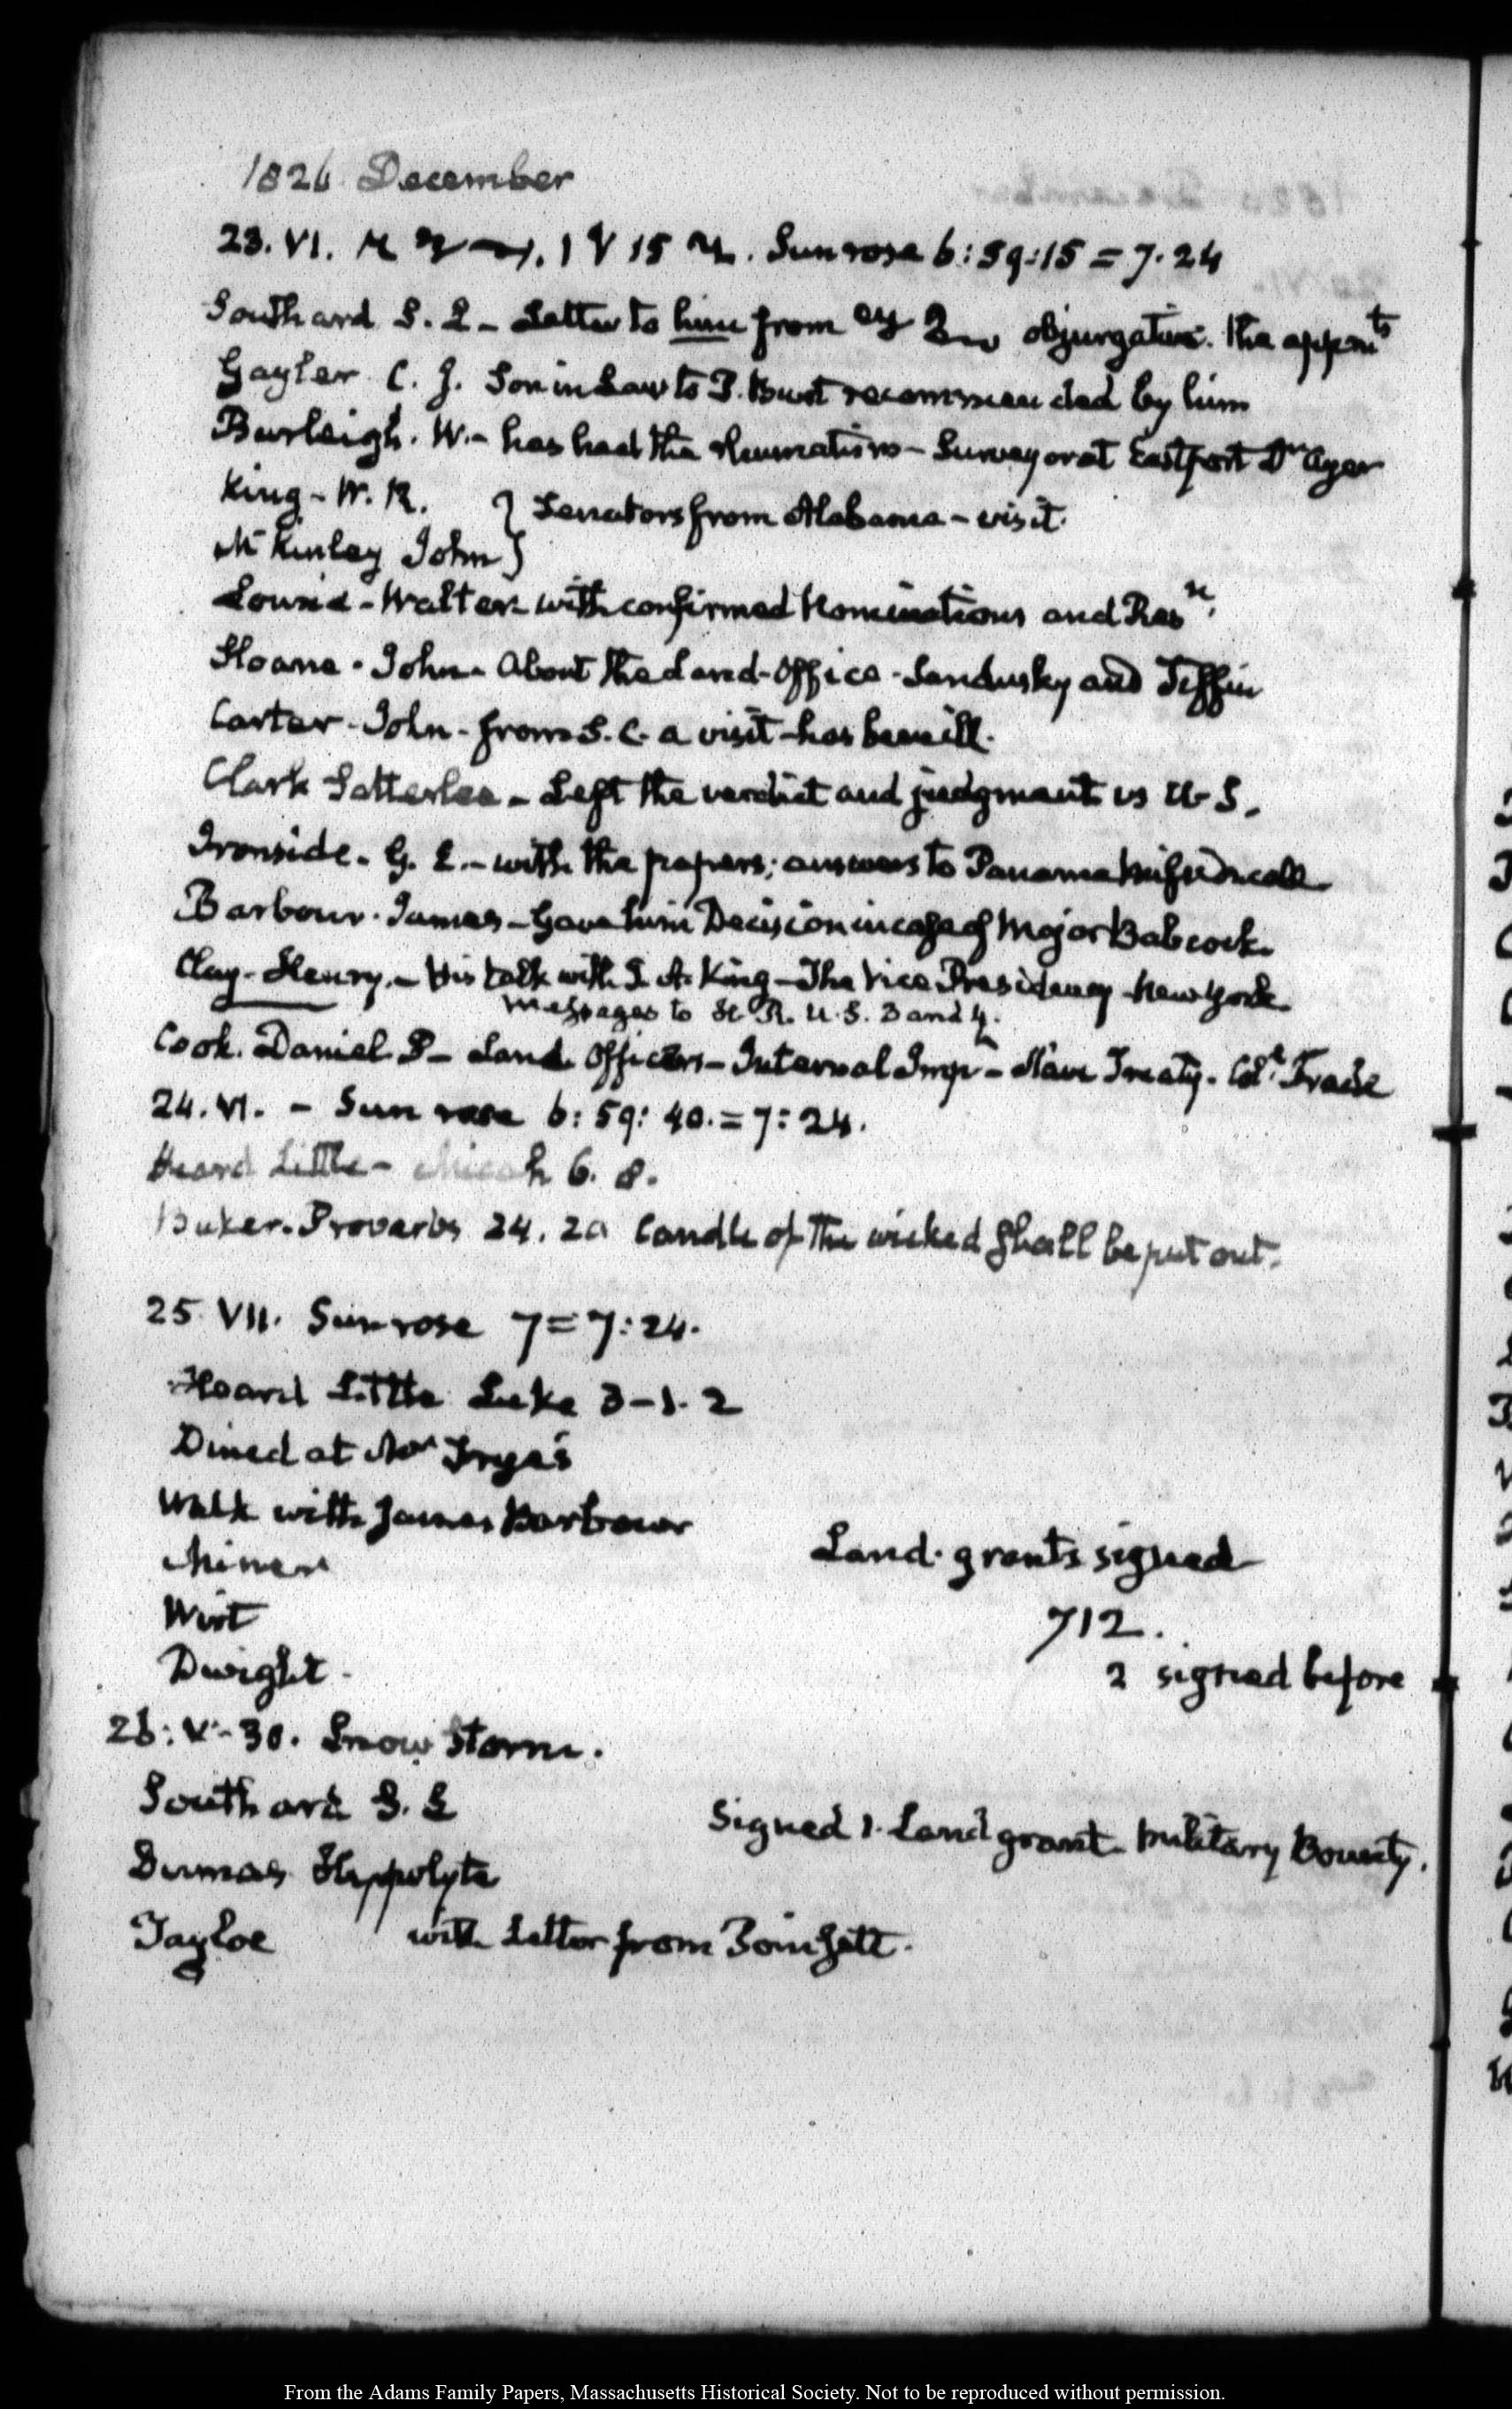 1826 December
23. VI. Sun rose 6:59:15 = 7.24
Southard S. L - Letter to him from objurgative. The appoint.ts
Gayler C. J. Son in Law to recommended by him
Burleigh. W. - has had the Rheumatism - Surveyor at Eastport Dr. Ayer
King - W. R. } Senators from Alabama - visit.
McKinley John }
Lowrie - Walter with confirmed Nominations and Resn.
Sloane - John - About the Land-Office - Sandusky and Tiffin
Carter - John - from S. C. a visit - has been ill.
Clark Satterlee - Left the verdict and judgment vs U.S.
Ironside - G. E. - with the papers; answers to Panama Mission call
Barbour - James - Gave him Decision in case of Major Babcock.
Clay - Henry. - His talk with J. A. King - The Vice Presidency New York
Messages to H. R. U.S. 3 and 4.
Cook. Daniel P - Land Officers - Internal Impt - Slave Treaty. Col.l Trade
24. VI. - Sun rose 6:59:40. = 7:24.
Heard Little - Micah 6. 8.
Baker. Proverbs 24. 20 Candle of the wicked shall be put out.
25 VII. Sun rose 7 = 7:24.
Heard Little Luke 3-1.2
Dined at Mrs Frye's
Walk with James Barbour
Miner
Land grants signed
Wirt
712.
Dwight.
2 signed before
26: V-30. Snow Storm.
Southard S. L
Signed 1. Land grant Military Bounty.
Dumas Hyppolyte
Tayloe with Letter from Poinsett.